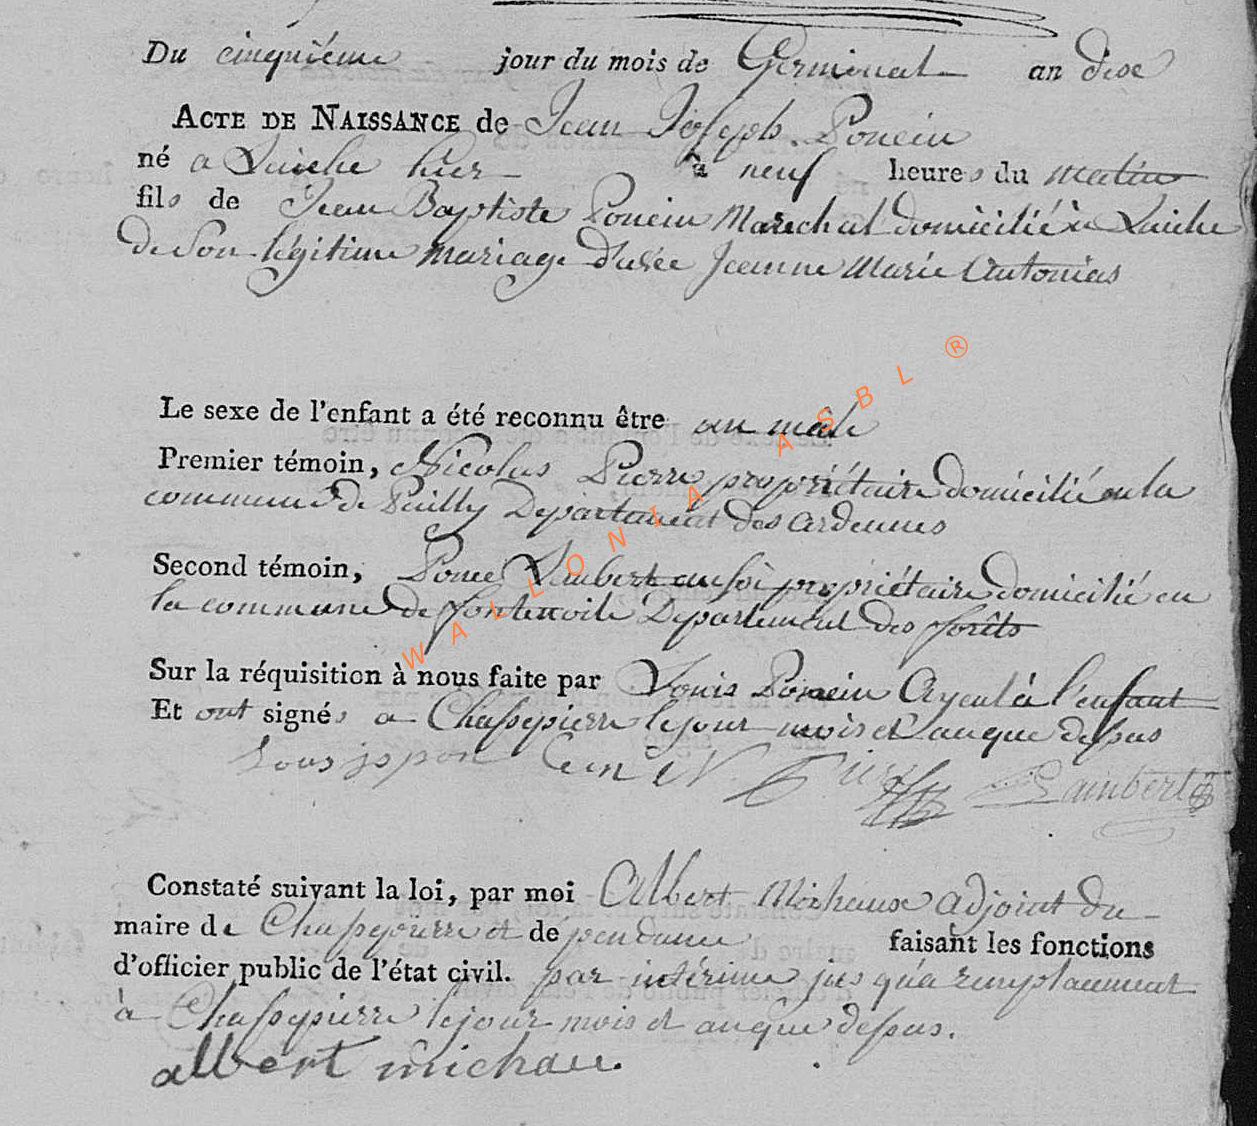 Du cinquieme jour du mois de Germinal an dixe
ACTE DE NAISSANCE de Jean Joseph Poncin
né a Laiche hier à neuf heures du matin
fils de Jean Baptiste Poncin Marechal domicilié à Laiche
de Son légitime mariage d'avec Jeanne Marie Antonias
Le sexe de l'enfant a été reconnu être un mâle
Premier témoin, Nicolas Pierre propriétaire domicilié en la
commune de Puilly Departement des ardennes
Second témoin, Ponce Lambert aussi propriétaire domicilié en
la commune de fontenoile Departement des forêts
Sur la réquisition à nous faite par Louis Poncin Ayeul à l'enfant
Et ont signés a Chassepierre le jour mois et an que dessus
Louis pon cin N. Lambert
Constaté suivant la loi, par moi Albert Michaux adjoint du
maire de Chassepierre et dependance faisant les fonctions
d'officier public de l'état civil. par intérime jusqu'a remplacement
à Chassepierre le jour mois et an que dessus.
albert michau.
WALLONIA ASBL ®